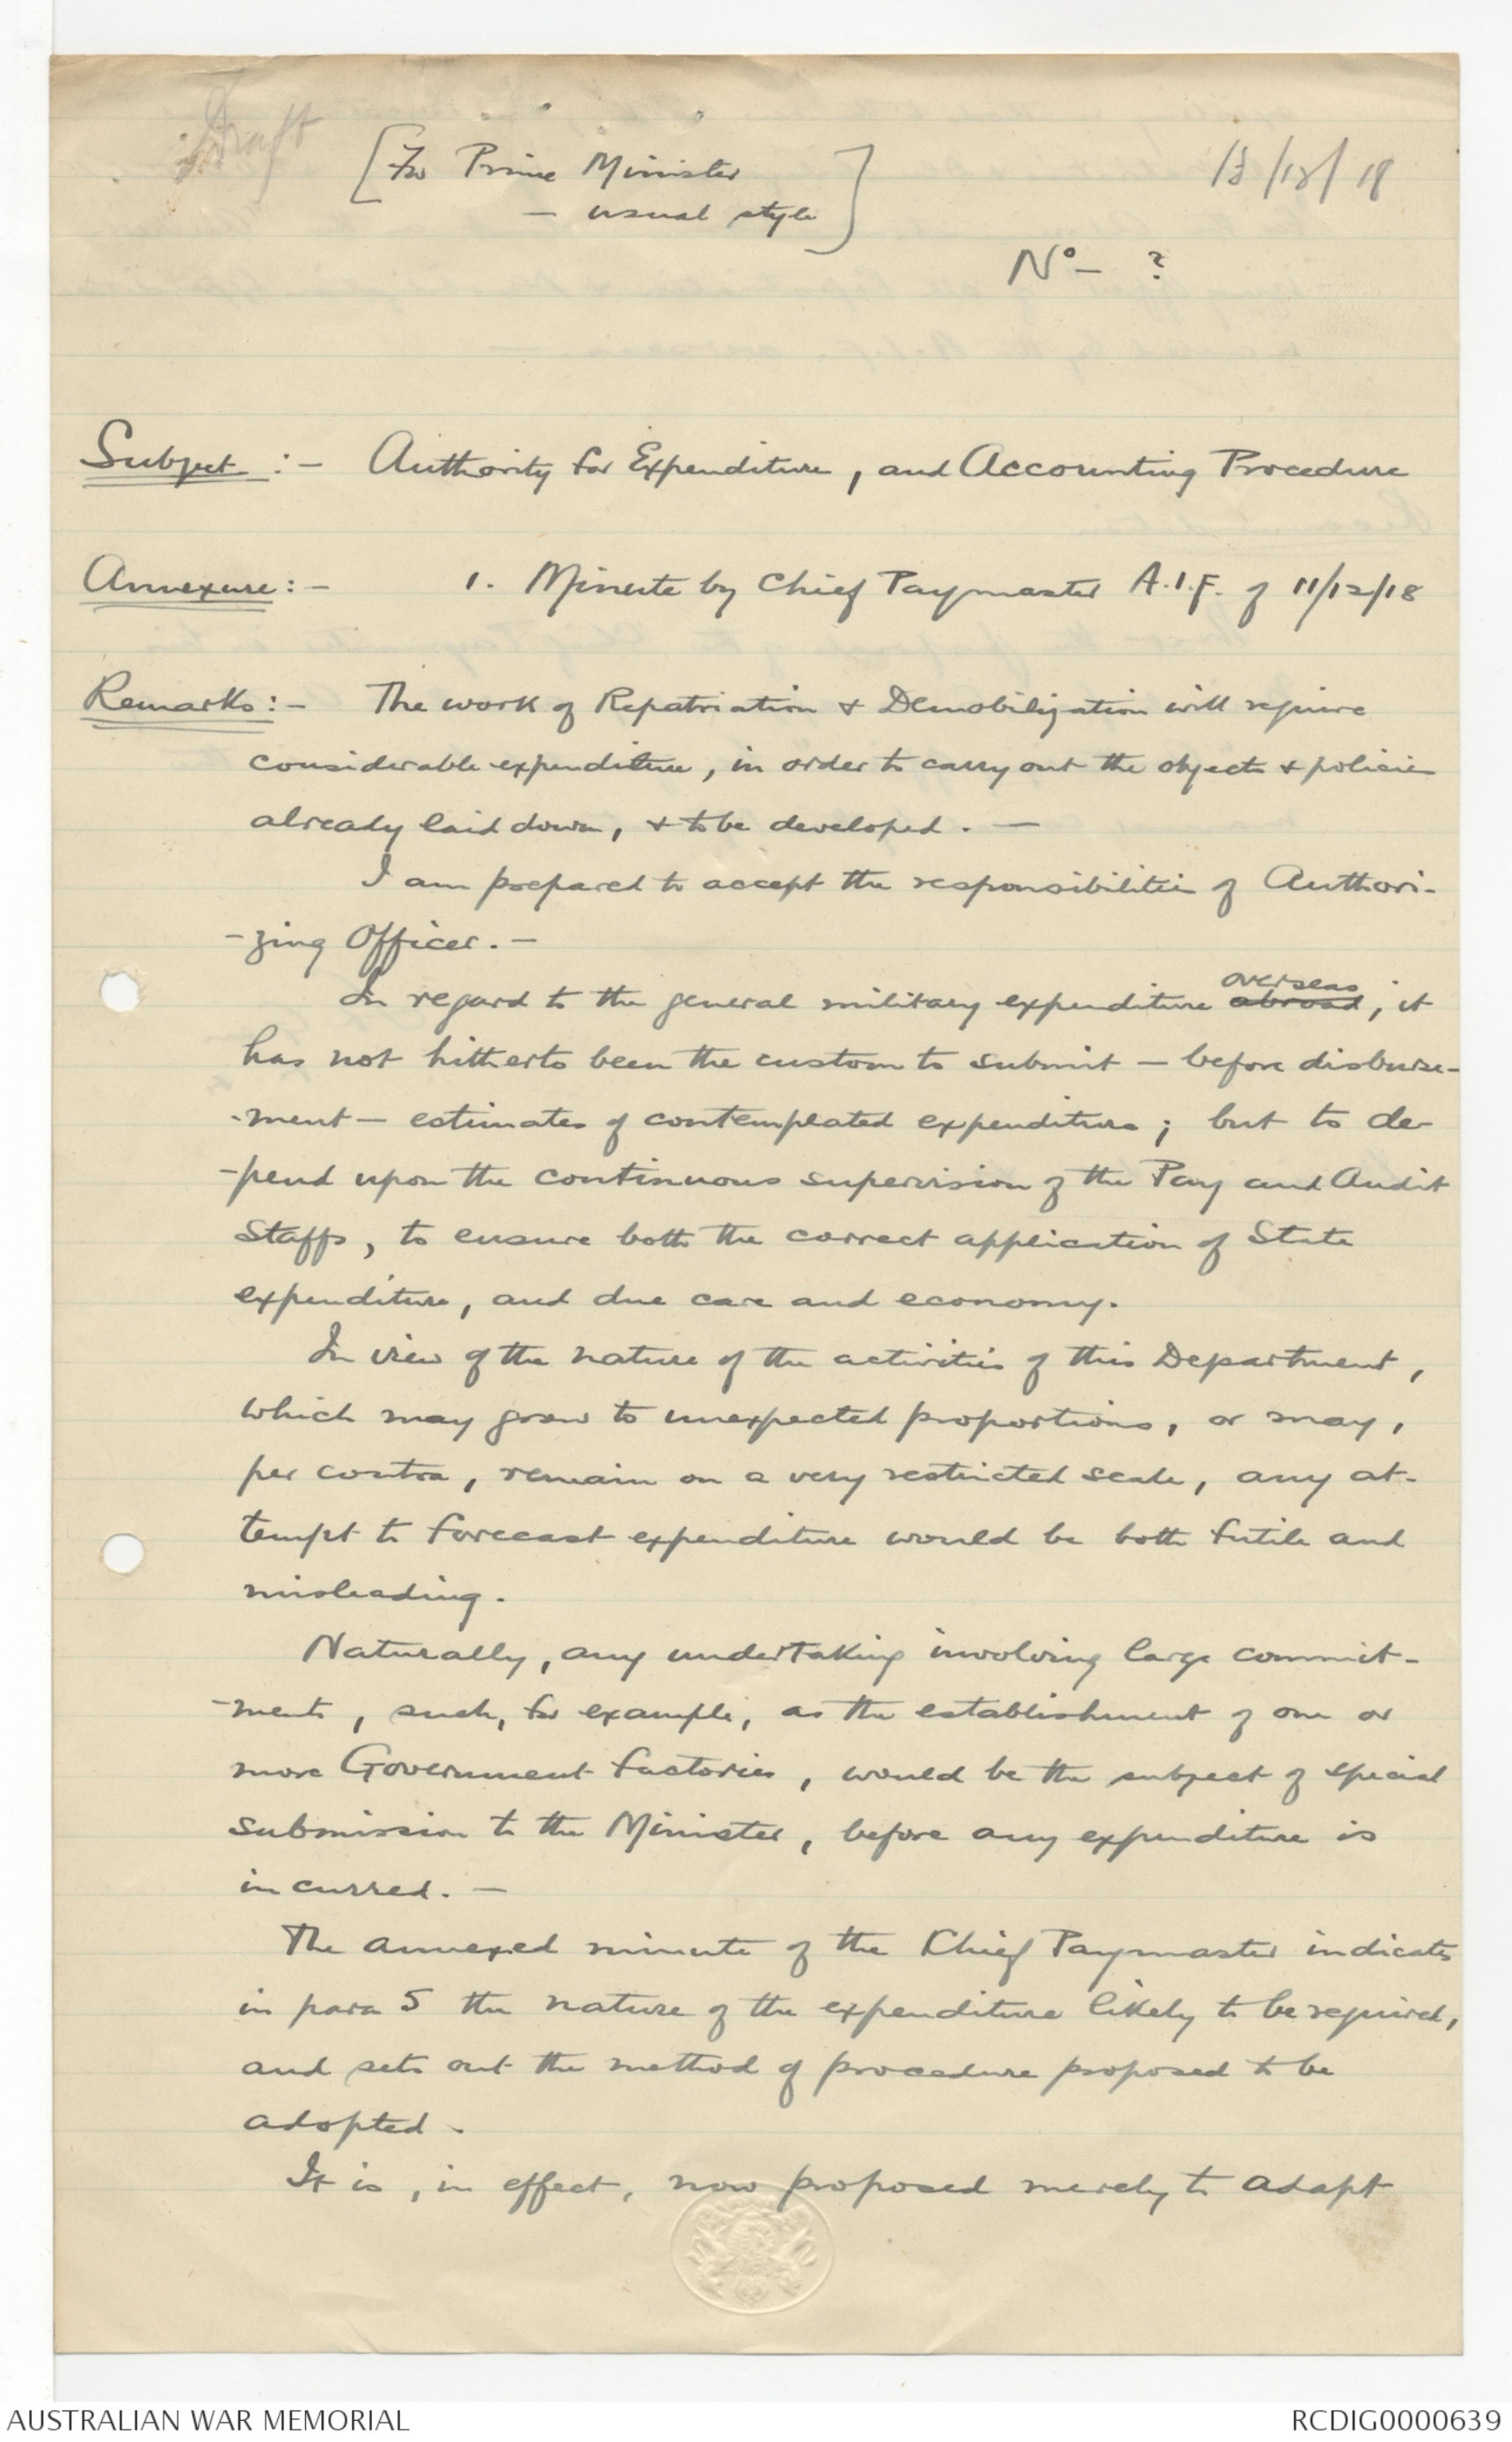 Draft
[For Prime Minister
– usual style]
13/12/18
No – ?
Subject :– Authority for Expenditure, and Accounting Procedure
Annexure :– 1. Minute by Chief Paymaster A.I.F. of 11/12/18
Remarks :– The work of Repatriation & Demobilization will require
considerable expenditure, in order to carry out the objects & policies
already laid down, & to be developed. –
I am prepared to accept the responsibilities of Authori-
-zing Officer. –
In regard to the general military expenditure abroad overseas; it
has not hitherto been the custom to submit – before disburse-
-ment – estimates of contemplated expenditure; but to de-
-pend upon the continuous supervision of the Pay and Audit
Staffs, to ensure both the correct application of State
expenditure, and due care and economy.
In view of the nature of the activities of this Department,
which may grow to unexpected proportions, or may,
per contra, remain on a very restricted scale, any at-
tempt to forecast expenditure would be both futile and
misleading.
Naturally, any undertaking involving large commit-
-ments, such, for example, as the establishment of one or
more Government factories, would be the subject of special
submission to the Minister, before any expenditure is
incurred. –
The annexed minute of the Chief Paymaster indicates
in para 5 the nature of the expenditure likely to be required,
and sets out the method of procedure proposed to be
adopted.
It is, in effect, now proposed merely to adapt
AUSTRALIAN WAR MEMORIAL
RCDIG0000639